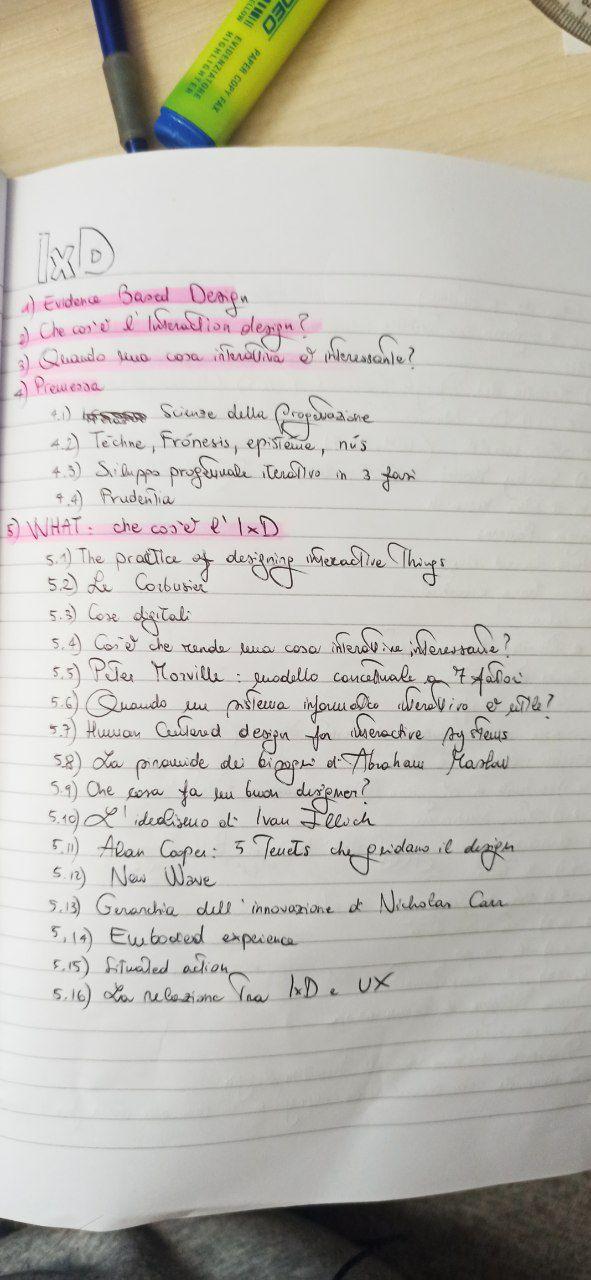 DEO
YELLOW
PAPER COPY FAX
EVIDENZIATORE
HIGHLIGHTER
IxD
1) Evidence Based Design
2) Che cos'è l'Interaction design?
3) Quando una cosa interattiva è interessante?
4) Premessa
4.1) Scienze della Progettazione
4.2) Téchne, Frónesis, epistéme, nús
4.3) Sviluppo progettuale iterativo in 3 fasi
4.4) Prudentia
5) WHAT: che cos'è l'IxD
5.1) The practice of designing interactive Things
5.2) Le Corbusier
5.3) Cose digitali
5.4) Cos'è che rende una cosa interattiva interessante?
5.5) Peter Morville: modello concettuale a 7 fattori
5.6) Quando un sistema informatico interattivo è utile?
5.7) Human Centered design for interactive systems
5.8) La piramide dei bisogni di Abraham Maslow
5.9) Che cosa fa un buon designer?
5.10) L'idealismo di Ivan Illich
5.11) Alan Cooper: 5 Tenets che guidano il design
5.12) New Wave
5.13) Gerarchia dell'innovazione di Nicholas Carr
5.14) Embodied experience
5.15) Situated action
5.16) La relazione Tra IxD e UX